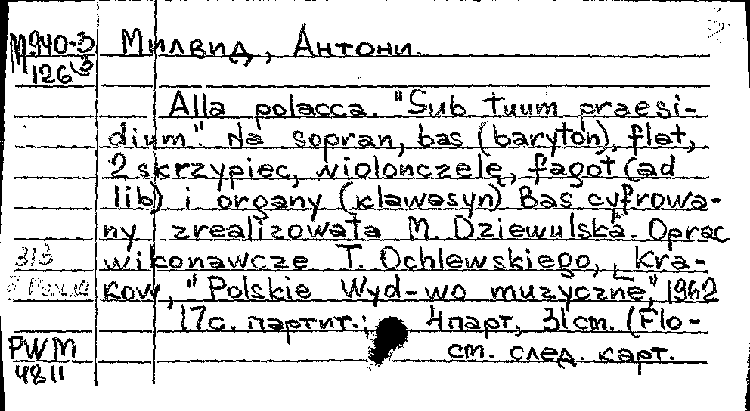 М940-3
126
Милвид, Антони.
Alla polacca. "Sub tuum praesi-
dium". Na sopran, bas (baryton), flet,
2 skrzypiec, wiolonczelę, fagot (ad
lib) i organy (klawasyn) Bas cyfrowa-
ny zrealizowata M. Dziewulska. Oprac
wikonawcze T. Ochlewskiego, Kra-
kow, "Polskie Wyd-wo muzyczne", 1962
17с. партит.; 4парт, 31см. (Flo-
см. след. карт.
313
PWM
4811